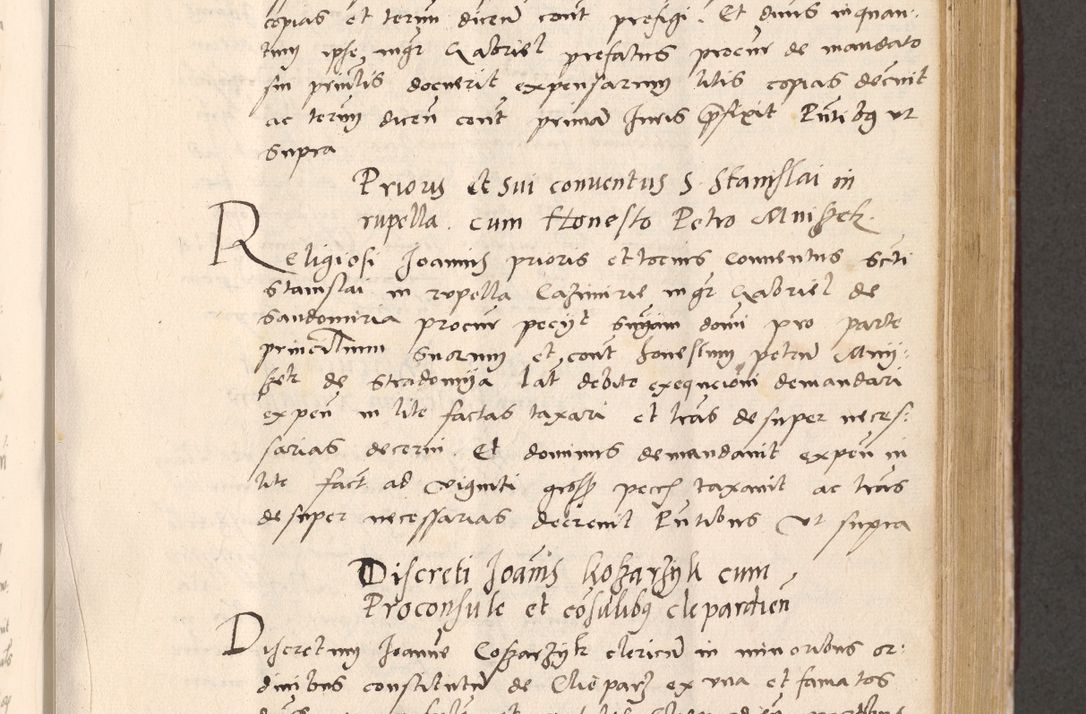 copias et terum dicend cont prefigi. Et dnus inquan-
tum ipse mgr Gabriel prefatus procur de mandato
sui prncilis docuerit expensarum litis copias decrevit
ac terum dicend cont primam Juris pfixit Pntibq ut
supra
Prioris et sui conventus S. Stanislai in
rupella. cum Honesto Petro Mnishek.
Religiosi Joannis prioris et totius conventus scti
Stanislai in rupella Cazimirie mgr Gabriel de
Sandomiria procur petyt snyam dnni pro parte
principalium suorum et cont honestum petrum Mny-
shek de Stradomya lat debite exequcioni demandari
expen in lite factas taxari et lras desuper neces-
sarias decerni. Et dominus demandavit expen in
lite fact ad viginti gross pecch taxavit ac lras
desuper necessarias decrevit Pntibus ut supra
Discreti Joanis Koszarzyk cum
Proconsule et cosulibq clepardien
Discretum Joanne Coszarzyk clericum in minoribus or-
dinibus constitutum de Clieparz ex una et famatos